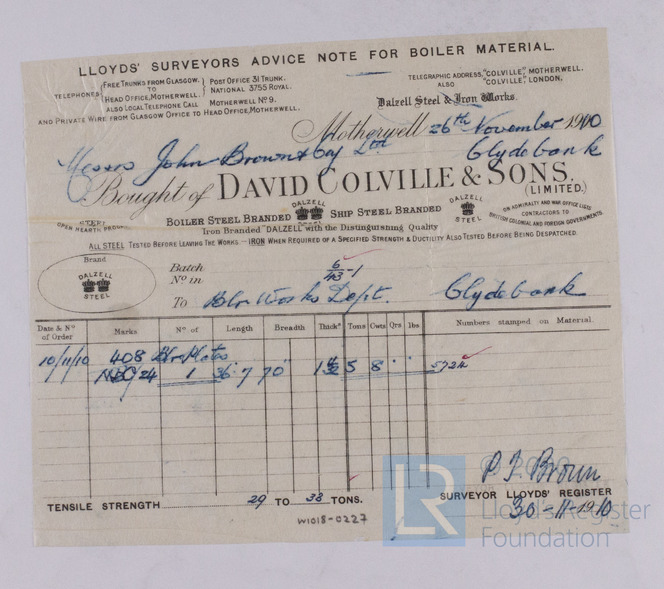 LLOYDS' SURVEYORS ADVICE NOTE FOR BOILER MATERIAL.
TELEPHONES { FREE TRUNKS FROM GLASGOW. TO HEAD OFFICE, MOTHERWELL. { POST OFFICE 31 TRUNK. NATIONAL 3755 ROYAL.
ALSO LOCAL TELEPHONE CALL MOTHERWELL Nº 9.
AND PRIVATE WIRE FROM GLASGOW OFFICE TO HEAD OFFICE, MOTHERWELL.
TELEGRAPHIC ADDRESS, "COLVILLE", MOTHERWELL.
ALSO "COLVILLE", LONDON.
Dalzell Steel & Iron Works.
Motherwell 26th November 1910
Messrs John Brown & Coy Ltd Clydebank
Bought of DAVID COLVILLE & SONS.
(LIMITED.)
OPEN HEARTH
BOILER STEEL BRANDED DALZELL STEEL SHIP STEEL BRANDED DALZELL STEEL
ON ADMIRALTY AND WAR OFFICE LISTS
CONTRACTORS TO
BRITISH COLONIAL AND FOREIGN GOVERNMENTS.
Iron Branded "DALZELL with the Distinguishing Quality
ALL STEEL TESTED BEFORE LEAVING THE WORKS – IRON WHEN REQUIRED OF A SPECIFIED STRENGTH & DUCTILITY ALSO TESTED BEFORE BEING DESPATCHED.
Brand
DALZELL
STEEL
Batch
Nº in 6/43-1
To Blr Works Dept. Clydebank
Date & Nº of Order Marks Nº of Length Breadth Thickˢ Tons Cwts Qrs lbs Numbers stamped on Material.
10/11/10 408 Blr Plates
24 1 36·7 70" 5 8 " "
TENSILE STRENGTH 29 TO 33 TONS.
P. J. Brown
SURVEYOR LLOYDS' REGISTER
30-11-1910
W1018-0227
LR
© 2020
Lloyd's Register
Foundation